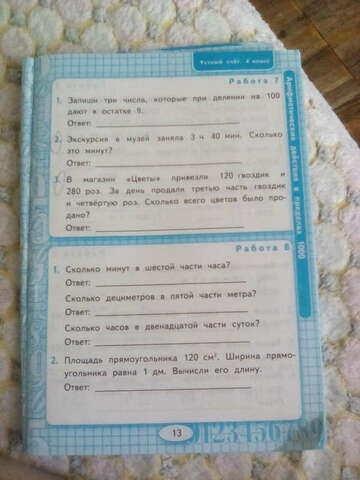 Устный счёт. 4 класс
Работа 7
1. Запиши три числа, которые при делении на 100
дают в остатке 8.
Ответ:
2. Экскурсия в музей заняла 3 ч 40 мин. Сколько
это минут?
Ответ:
3. В магазин «Цветы» привезли 120 гвоздик и
280 роз. За день продали третью часть гвоздик
и четвёртую роз. Сколько всего цветов было про-
дано?
Ответ:
Работа 8
1. Сколько минут в шестой части часа?
Ответ:
Сколько дециметров в пятой части метра?
Ответ:
Сколько часов в двенадцатой части суток?
Ответ:
2. Площадь прямоугольника 120 см². Ширина прямо-
угольника равна 1 дм. Вычисли его длину.
Ответ:
Арифметические действия в пределах 1000
13
0123456789